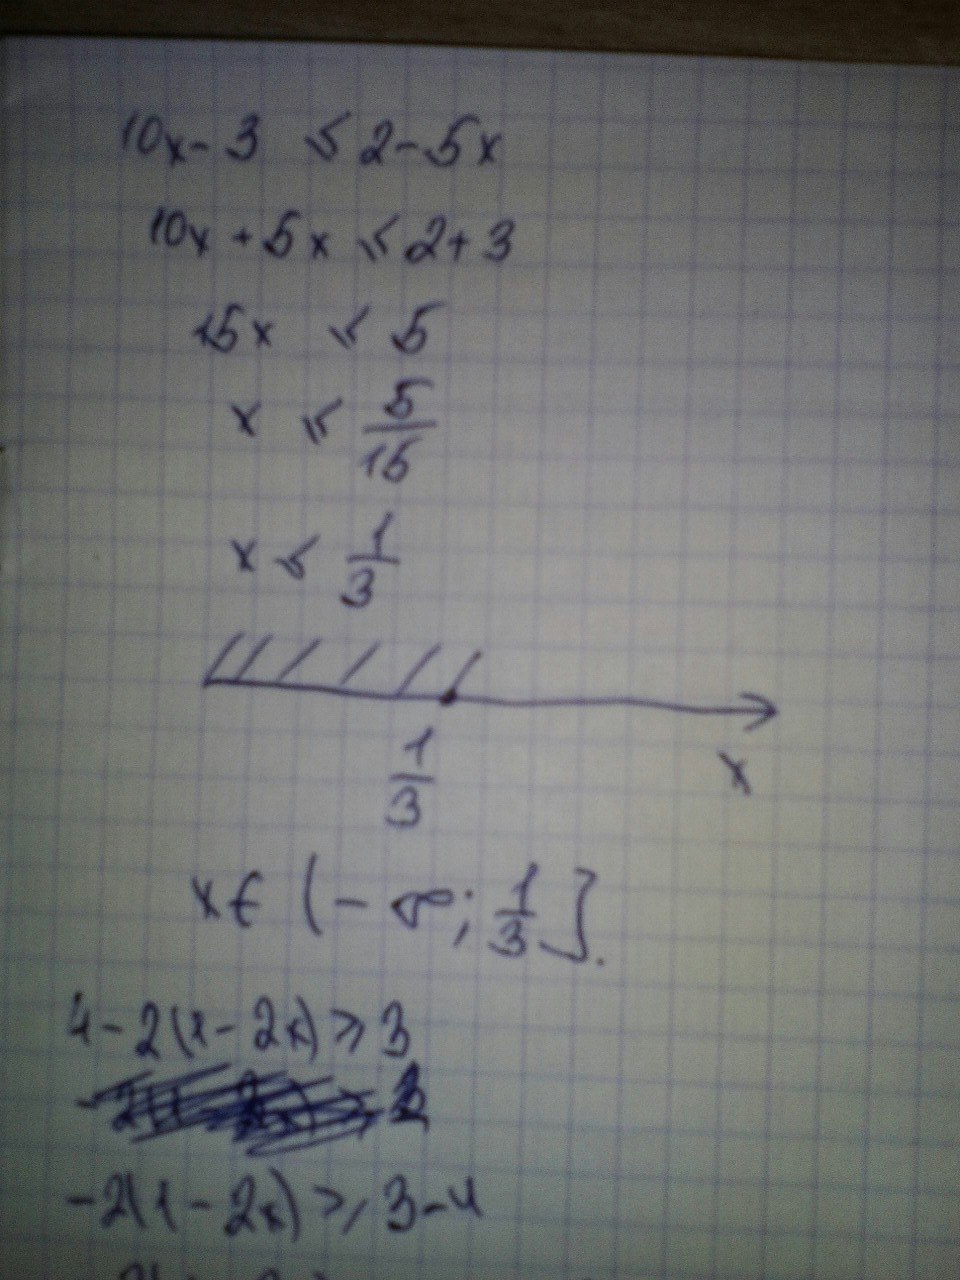 10x - 3 ≤ 2 - 5x
10x + 5x ≤ 2 + 3
15x ≤ 5
x ≤ 5/15
x ≤ 1/3
1/3
x
x ∈ (-∞; 1/3].
4 - 2(1 - 2x) ≥ 3
-2(1 - 2x) ≥ 3 - 4